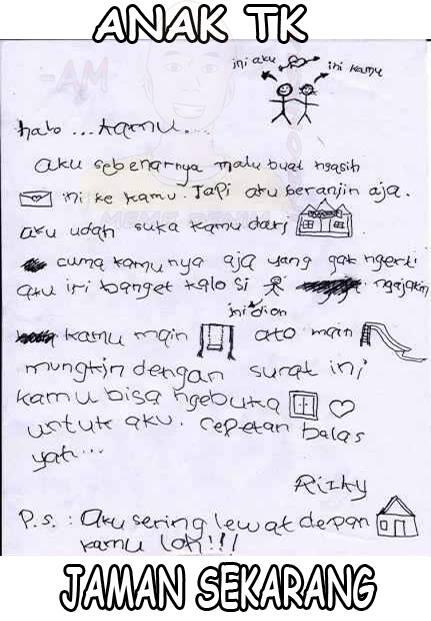 ANAK TK
-AM
ini aku
ini kamu
halo ... kamu....
aku sebenarnya malu buat ngasih
ini ke kamu. Tapi aku beranjin aja.
aku udah suka kamu dari
cuma kamu nya aja yang gak ngerti
aku iri banget kalo si ngajakin
ini dion
kamu main ato main
mungkin dengan surat ini
kamu bisa ngebuka
untuk aku. cepetan balas
yah...
Rizky
P.s. : Aku sering lewat depan
kamu loh!!!
JAMAN SEKARANG